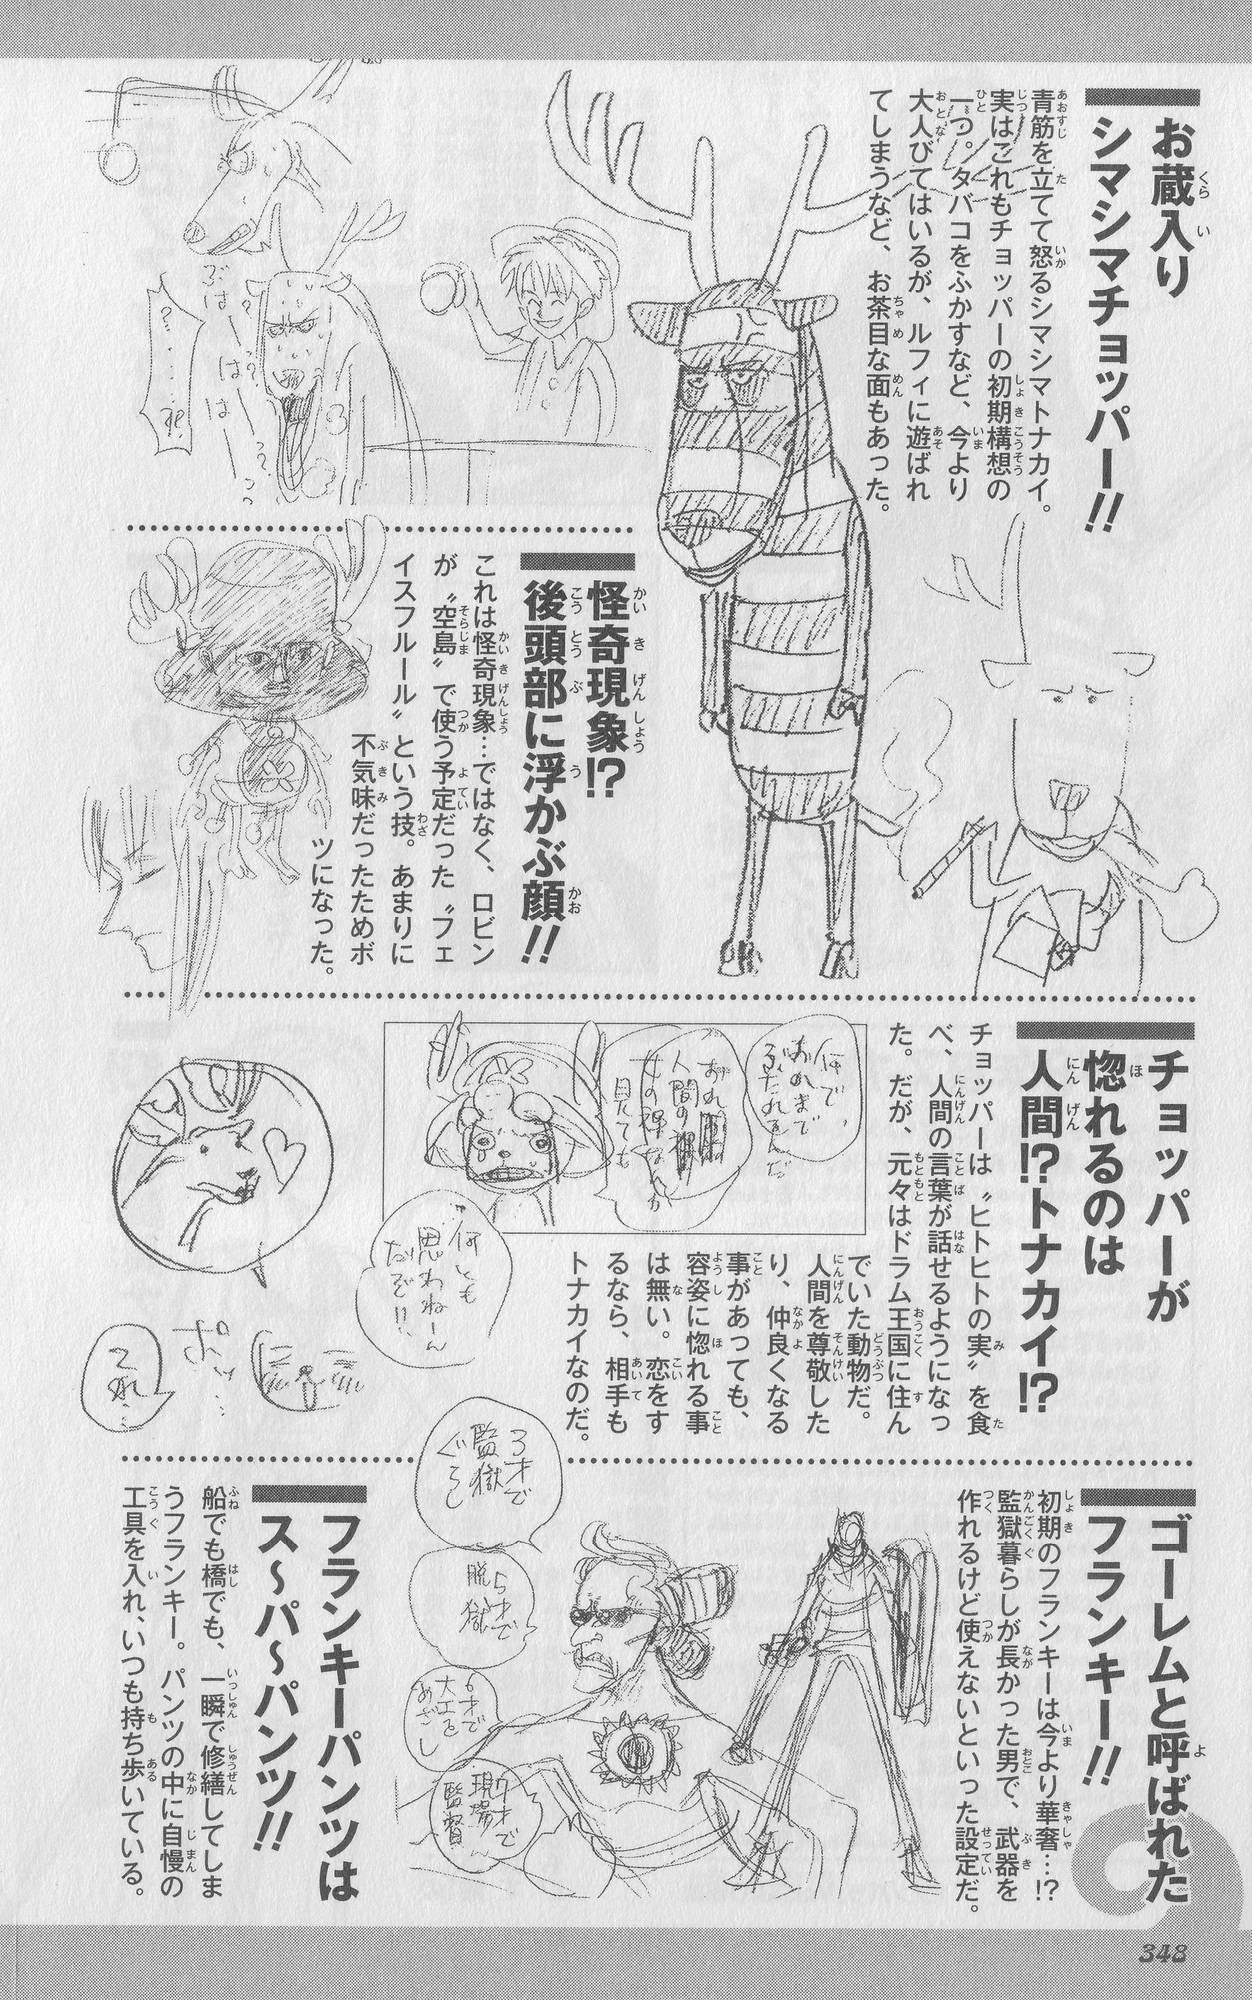 お蔵入り
シマシマチョッパー!!
青筋を立てて怒るシマシマトナカイ。
実はこれもチョッパーの初期構想の
一つ。タバコをふかすなど、今より
大人びてはいるが、ルフィに遊ばれ
てしまうなど、お茶目な面もあった。
怪奇現象!?
後頭部に浮かぶ顔!!
これは怪奇現象…ではなく、ロビン
が〝空島〟で使う予定だった〝フェ
イスフルール〟という技。あまりに
不気味だったためボ
ツになった。
チョッパーが
惚れるのは
人間!?トナカイ!?
チョッパーは〝ヒトヒトの実〟を食
べ、人間の言葉が話せるようになっ
た。だが、元々はドラム王国に住ん
でいた動物だ。
人間を尊敬した
り、仲良くなる
事があっても、
容姿に惚れる事
は無い。恋をす
るなら、相手も
トナカイなのだ。
何で、
おれまで
ぶたれるんだ
おれ
人間の
女の裸なんか
見ても
何とも
思わねーん
だぞ!!
ポッ…
てれ…
ゴーレムと呼ばれた
フランキー!!
初期のフランキーは今より華奢…!?
監獄暮らしが長かった男で、武器を
作れるけど使えないといった設定だ。
3才で
監獄
ぐらし
5才で
脱獄
6才で
大工を
めざし
7才で
現場
監督
フランキーパンツは
ス〜パ〜パンツ!!
船でも橋でも、一瞬で修繕してしま
うフランキー。パンツの中に自慢の
工具を入れ、いつも持ち歩いている。
348